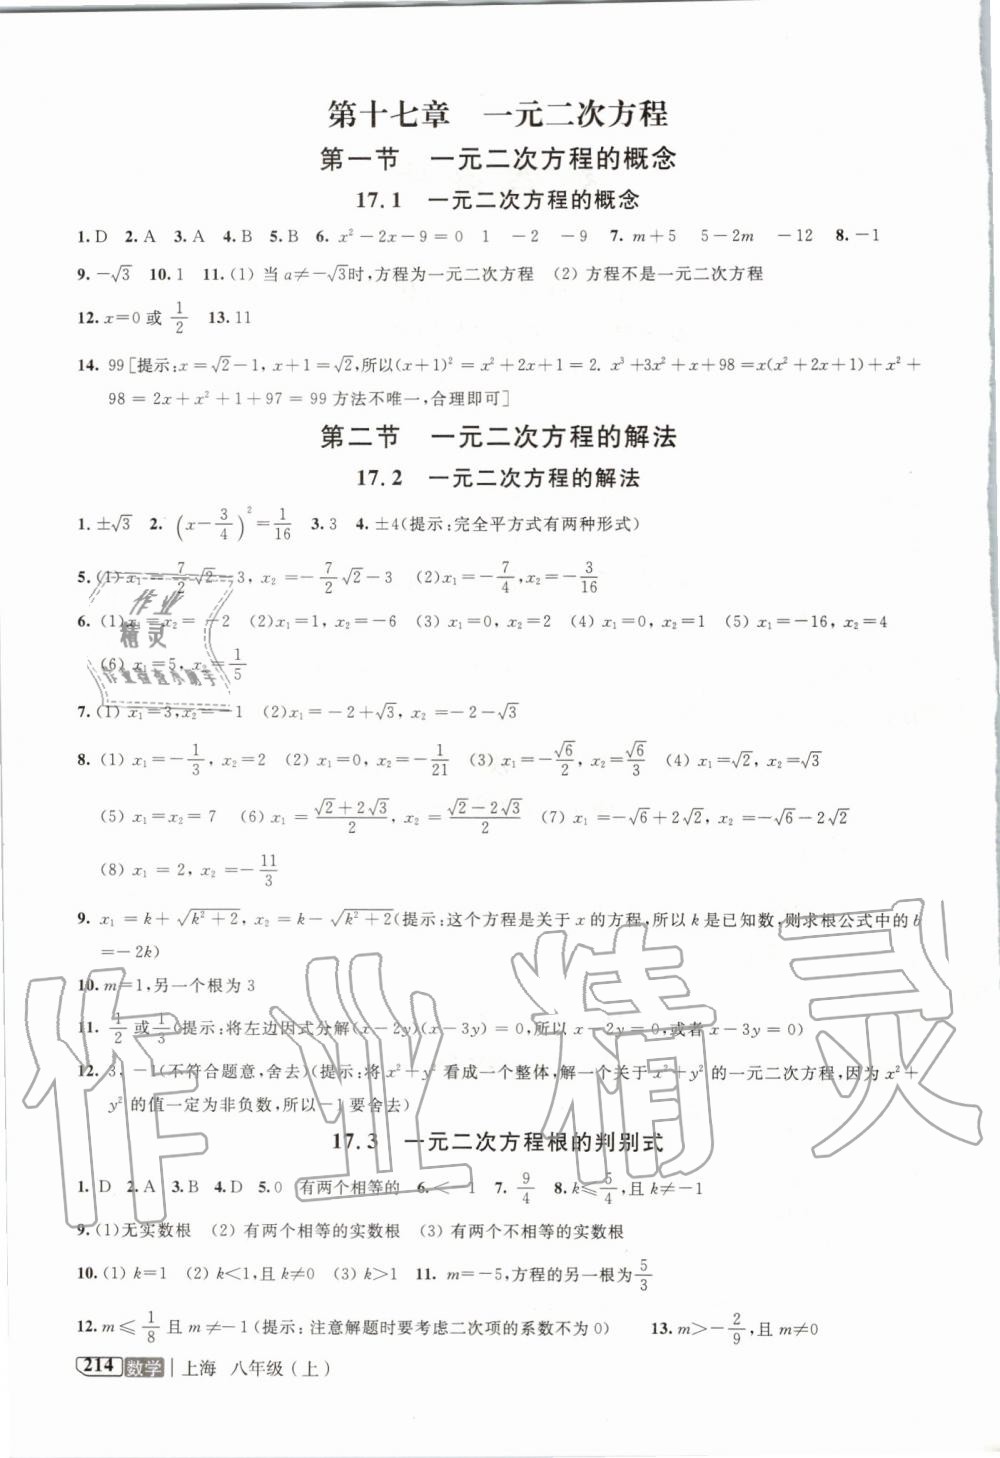 第十七章 一元二次方程
第一节 一元二次方程的概念
17.1 一元二次方程的概念
1. D 2. A 3. A 4. B 5. B 6. x²－2x－9＝0 1 －2 －9 7. m＋5 5－2m －12 8. －1
9. －√3 10. 1 11. (1) 当 a≠－√3时,方程为一元二次方程 (2) 方程不是一元二次方程
12. x＝0 或 1/2 13. 11
14. 99[提示:x＝√2－1, x＋1＝√2,所以(x＋1)²＝x²＋2x＋1＝2. x³＋3x²＋x＋98＝x(x²＋2x＋1)＋x²＋
98＝2x＋x²＋1＋97＝99 方法不唯一,合理即可]
第二节 一元二次方程的解法
17.2 一元二次方程的解法
1. ±√3 2. (x－3/4)²＝1/16 3. 3 4. ±4(提示:完全平方式有两种形式)
5. (1) x₁＝7/2√2－3, x₂＝－7/2√2－3 (2)x₁＝－7/4,x₂＝－3/16
6. (1)x₁＝x₂＝－2 (2)x₁＝1, x₂＝－6 (3) x₁＝0, x₂＝2 (4) x₁＝0, x₂＝1 (5) x₁＝－16, x₂＝4
(6) x₁＝5, x₂＝1/5
7. (1) x₁＝3,x₂＝－1 (2)x₁＝－2＋√3, x₂＝－2－√3
8. (1) x₁＝－1/3, x₂＝2 (2) x₁＝0, x₂＝－1/21 (3) x₁＝－√6/2, x₂＝√6/3 (4) x₁＝√2, x₂＝√3
(5) x₁＝x₂＝7 (6) x₁＝(√2＋2√3)/2, x₂＝(√2－2√3)/2 (7) x₁＝－√6＋2√2, x₂＝－√6－2√2
(8) x₁＝2, x₂＝－11/3
9. x₁＝k＋√(k²＋2), x₂＝k－√(k²＋2)(提示:这个方程是关于 x 的方程,所以 k 是已知数,则求根公式中的 b
＝－2k)
10. m＝1,另一个根为 3
11. 1/2 或 1/3(提示:将左边因式分解(x－2y)(x－3y)＝0,所以 x－2y＝0,或者 x－3y＝0)
12. 3, －1(不符合题意,舍去)(提示:将 x²＋y² 看成一个整体,解一个关于 x²＋y² 的一元二次方程,因为 x²＋
y² 的值一定为非负数,所以－1 要舍去)
17.3 一元二次方程根的判别式
1. D 2. A 3. B 4. D 5. 0 有两个相等的 6. ＜－1 7. 9/4 8. k≤5/4,且 k≠－1
9. (1)无实数根 (2) 有两个相等的实数根 (3) 有两个不相等的实数根
10. (1) k＝1 (2) k＜1,且 k≠0 (3) k＞1 11. m＝－5,方程的另一根为5/3
12. m≤1/8 且 m≠－1(提示:注意解题时要考虑二次项的系数不为 0) 13. m＞－2/9,且 m≠0
214 数学 | 上海 八年级(上)
作业
精灵
作业检查小助手
作业精灵